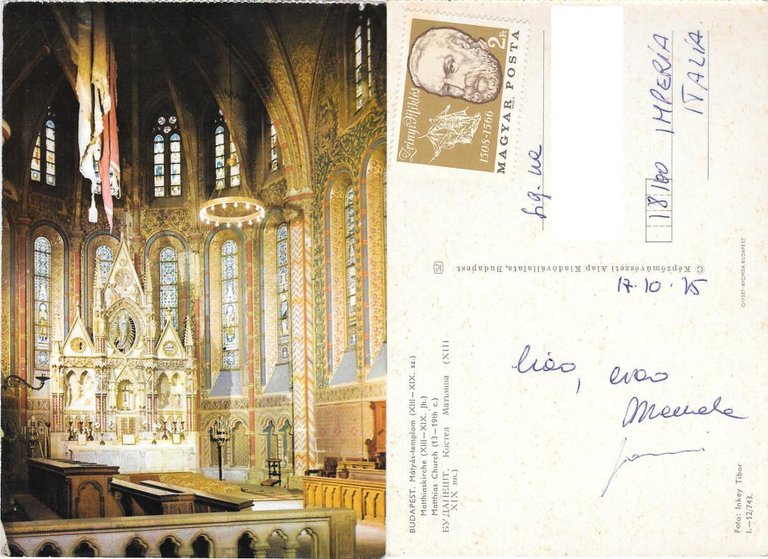 Zrinyi Miklós
1508-1566
MAGYAR POSTA
2Ft
Sig.na
18100 IMPERIA
ITALIA
© Képzőművészeti Alap Kiadóvállalata, Budapest
OFFSET-NYOMDA BUDAPEST
17.10.75
Ciao, ciao
Manuela
BUDAPEST. Mátyás-templom (XIII—XIX. sz.)
Matthiaskirche (XIII—XIX. Jh.)
Matthias Church (13—19th c.)
БУДАПЕШТ. Костел Матьяша (XIII
XIX вв.)
Foto: Inkey Tibor
I.—12/743.